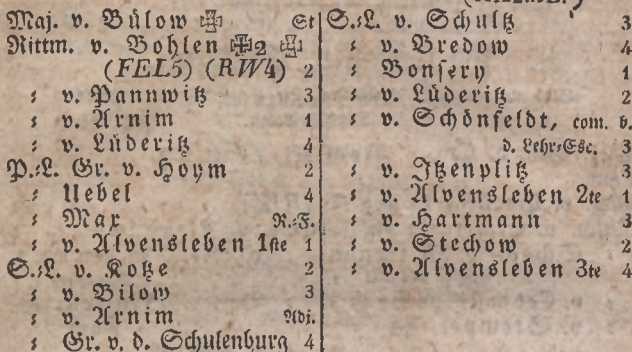 Maj. v. Bülow ✠ St
Rittm. v. Bohlen ✠2 ✠
(FEL5) (RW4) 2
⸗ v. Pannwitz 3
⸗ v. Arnim 1
⸗ v. Lüderitz 4
P.⸗L. Gr. v. Hoym 2
⸗ Uebel 4
⸗ Max R.⸗F.
⸗ v. Alvensleben 1ste 1
S.⸗L. v. Kotze 2
⸗ v. Bilow 3
⸗ v. Arnim Adj.
⸗ Gr. v. d. Schulenburg 4
S.⸗L. v. Schultz 3
⸗ v. Bredow 4
⸗ Bonsery 1
⸗ v. Lüderitz 2
⸗ v. Schönfeldt, com. b.
d. Lehr⸗Esc. 3
⸗ v. Itzenplitz 3
⸗ v. Alvensleben 2te 1
⸗ v. Hartmann 3
⸗ v. Stechow 2
⸗ v. Alvensleben 3te 4